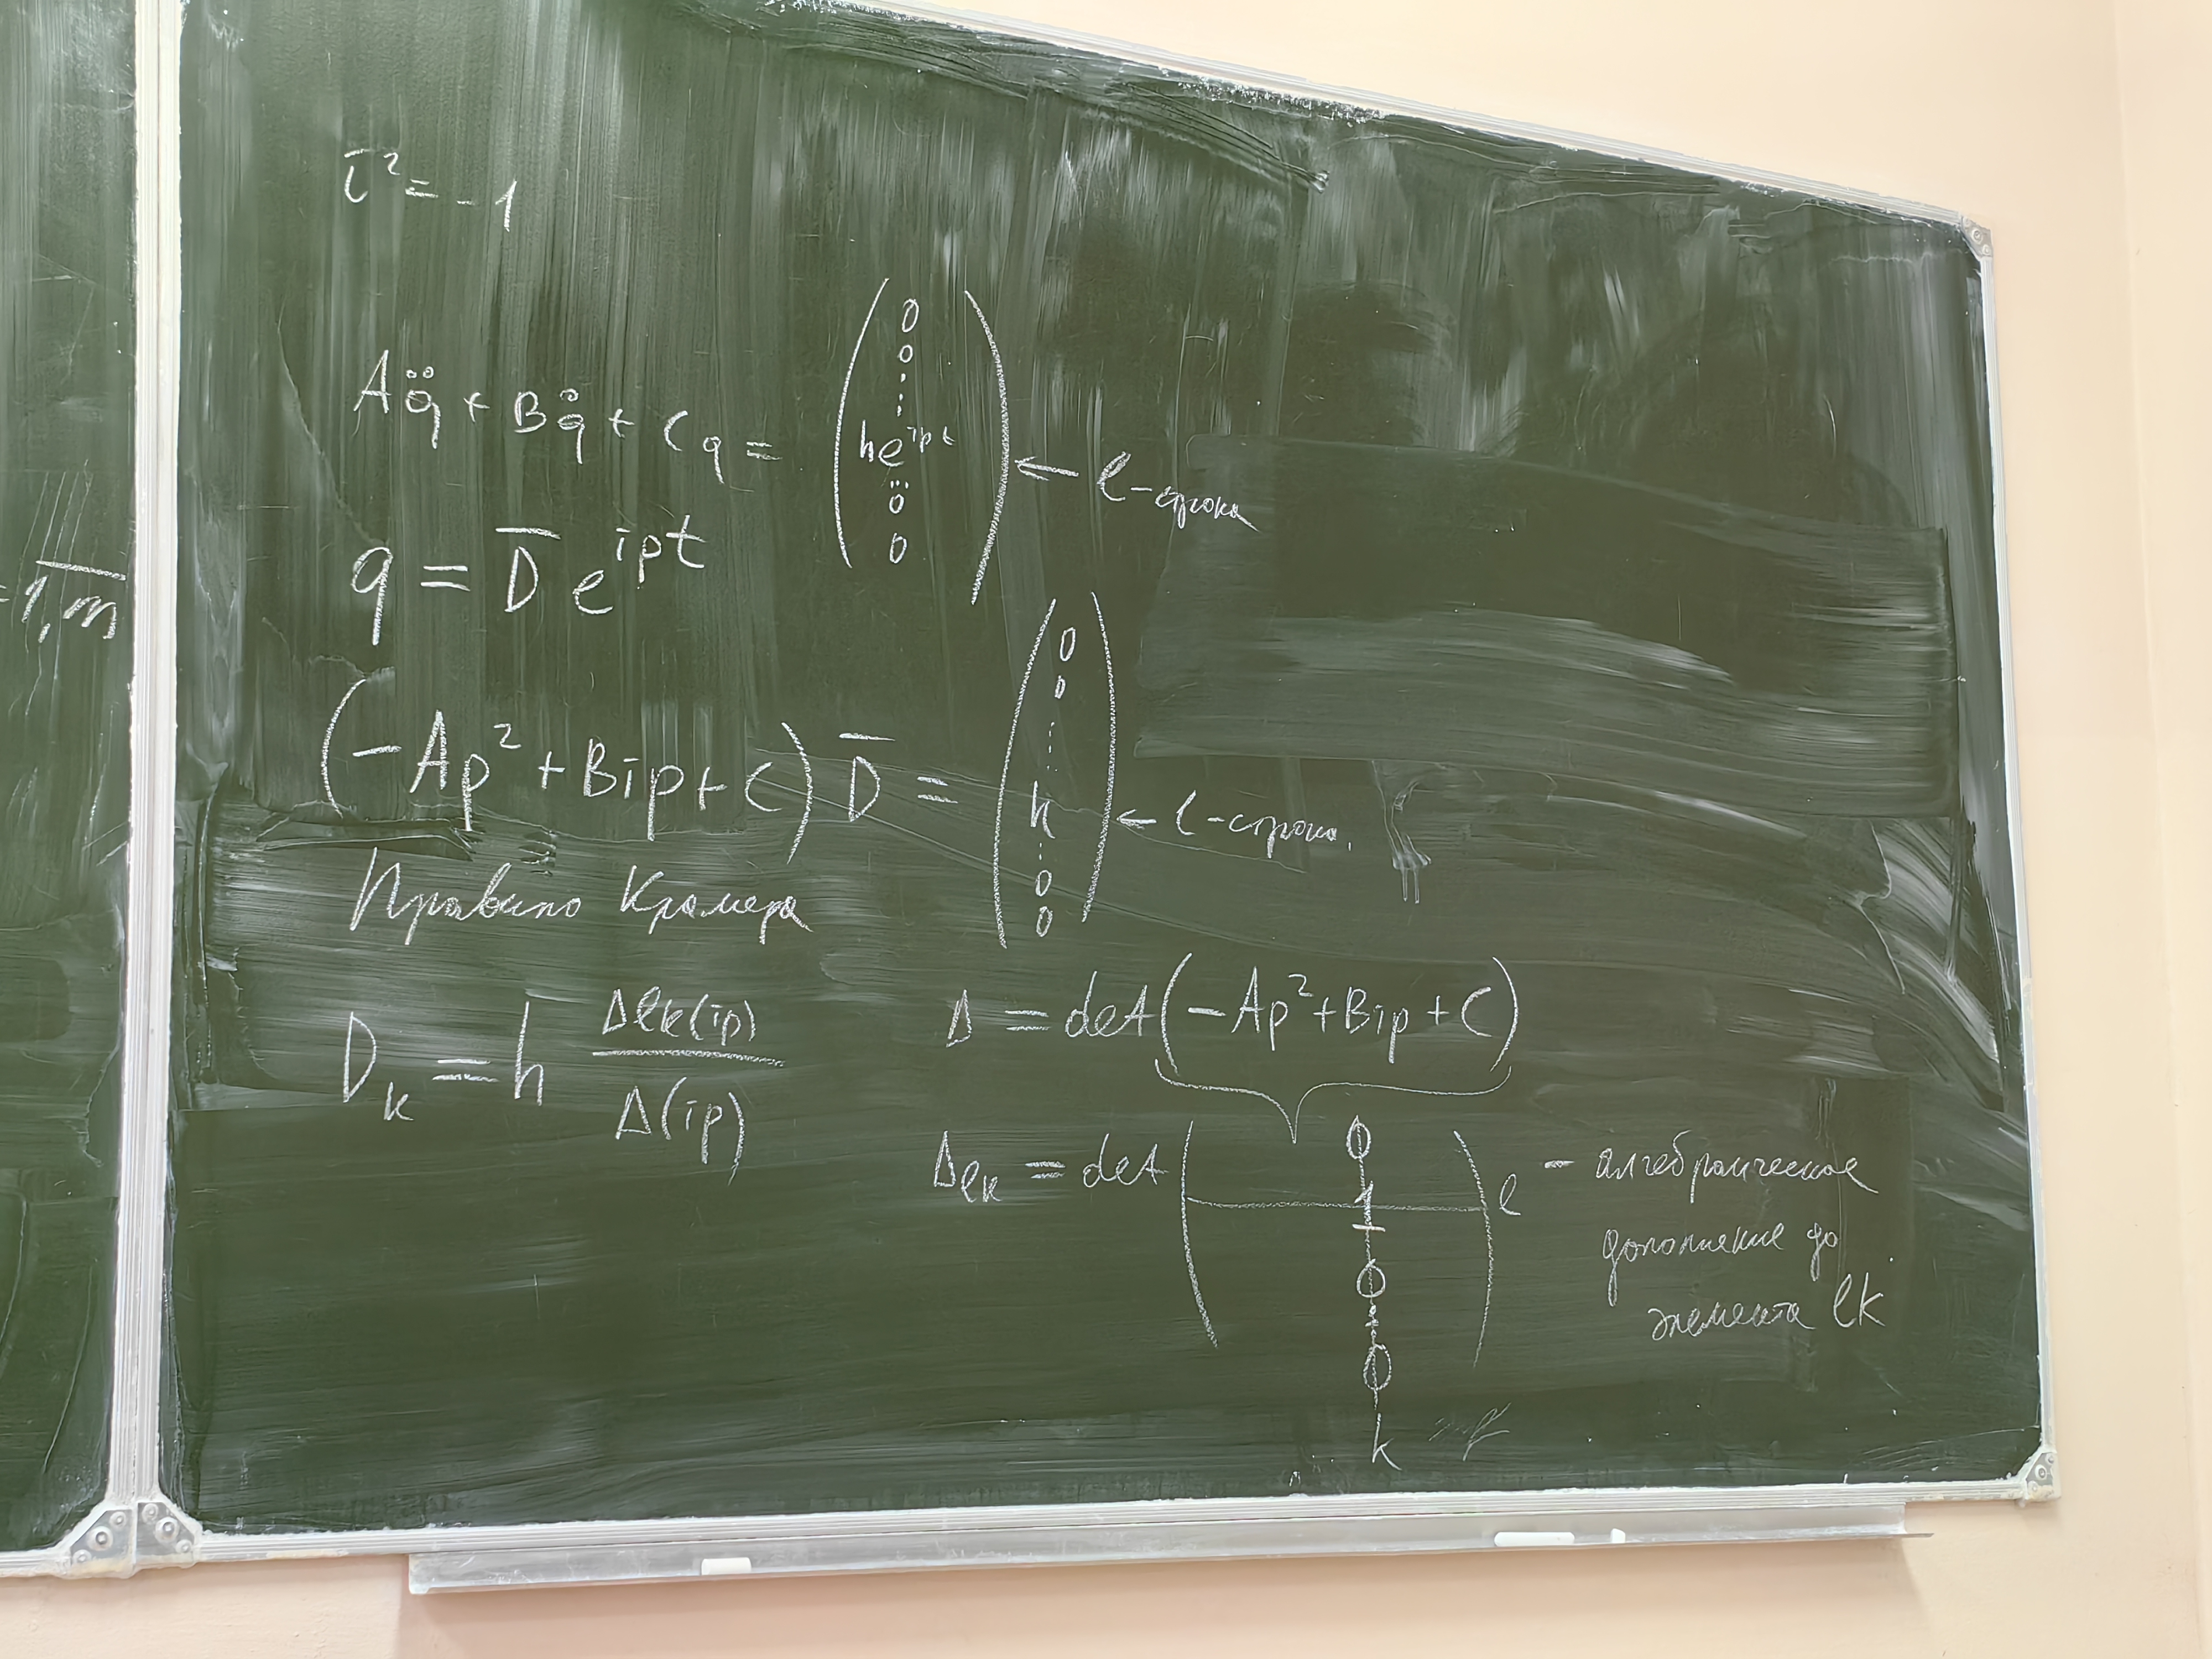 = 1,m̅
ī² = -1
Aq̈ + Bq̇ + Cq = (0 0 ⋮ he^{īpt} ... 0 0) ← l-строка
q = D̅ e^{īpt}
(-Ap² + Bīp + C) D̅ = (0 0 ⋮ h ⋮ 0 0) ← l-строка.
Правило Крамера
D_k = h Δlk(īp) / Δ(īp)
Δ = det(-Ap² + Bīp + C)
Δ_lk = det(0 1 0 ⋮ 0) l - алгебраическое
дополнение до
элемента lk
k